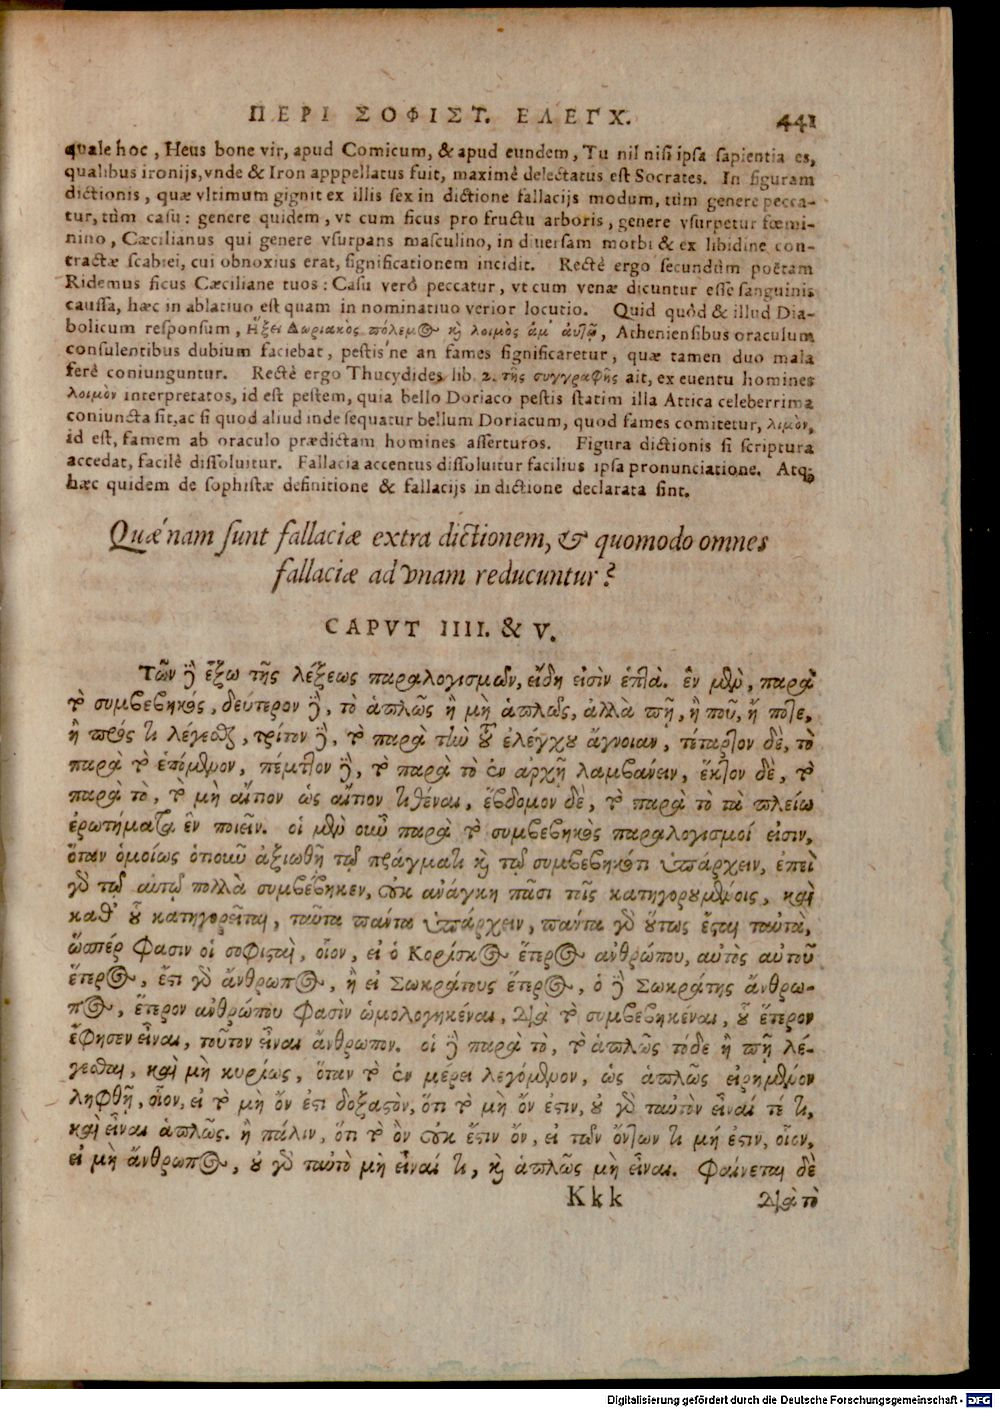 ΠΕΡΙ ΣΟΦΙΣΤ. ΕΛΕΓΧ. 441
quale hoc, Heus bone vir, apud Comicum, & apud eundem, Tu nil nisi ipsa sapientia es,
qualibus ironijs, vnde & Iron apppellatus fuit, maximè delectatus est Socrates. In figuram
dictionis, quæ vltimum gignit ex illis sex in dictione fallacijs modum, tùm genere pecca-
tur, tùm casu: genere quidem, vt cum ficus pro fructu arboris, genere vsurpetur fœmi-
nino, Cæcilianus qui genere vsurpans masculino, in diuersam morbi & ex libidine con-
tractæ scabiei, cui obnoxius erat, significationem incidit. Rectè ergo secundùm poëtam
Ridemus ficus Cæciliane tuos: Casu verò peccatur, vt cum venæ dicuntur esse sanguinis
caussa, hæc in ablatiuo est quam in nominatiuo verior locutio. Quid quòd & illud Dia-
bolicum responsum, Ηξει Δωριακὸς πόλεμος καὶ λοιμὸς ἅμ' αὐτῷ, Atheniensibus oraculum
consulentibus dubium faciebat, pestis'ne an fames significaretur, quæ tamen duo mala
ferè coniunguntur. Rectè ergo Thucydides lib. 2. τῆς συγγραφῆς ait, ex euentu homines
λοιμὸν interpretatos, id est pestem, quia bello Doriaco pestis statim illa Attica celeberrima
coniuncta sit, ac si quod aliud inde sequatur bellum Doriacum, quod fames comitetur, λιμὸν,
id est, famem ab oraculo prædictam homines asserturos. Figura dictionis si scriptura
accedat, facilè dissoluitur. Fallacia accentus dissoluitur facilius ipsa pronunciatione. Atq;
hæc quidem de sophistæ definitione & fallacijs in dictione declarata sint.
Quæ'nam sunt fallaciæ extra dictionem, & quomodo omnes
fallaciæ ad vnam reducuntur?
CAPVT IIII. & V.
Τῶν δὲ ἔξω τῆς λέξεως παραλογισμῶν, εἴδη εἰσὶν ἑπτά. ἓν μὲν, παρὰ
τὸ συμβεβηκός, δεύτερον δὲ, τὸ ἁπλῶς ἢ μὴ ἁπλῶς, ἀλλὰ πῆ, ἢ ποῦ, ἤ ποτε,
ἢ πρός τι λέγεσθαι, τρίτον δὲ, τὸ παρὰ τὴν τοῦ ἐλέγχου ἄγνοιαν, τέταρτον δὲ, τὸ
παρὰ τὸ ἑπόμενον, πέμπτον δὲ, τὸ παρὰ τὸ ἐν ἀρχῇ λαμβάνειν, ἕκτον δὲ, τὸ
παρὰ τὸ, τὸ μὴ αἴτιον ὡς αἴτιον τιθέναι, ἕβδομον δὲ, τὸ παρὰ τὸ τὰ πλείω
ἐρωτήματα ἓν ποιεῖν. οἱ μὲν οὖν παρὰ τὸ συμβεβηκὸς παραλογισμοί εἰσιν,
ὅταν ὁμοίως ὁτιοῦν ἀξιωθῇ τῷ πράγματι καὶ τῷ συμβεβηκότι ὑπάρχειν, ἐπεὶ
γὰρ τῷ αὐτῷ πολλὰ συμβέβηκεν, οὐκ ἀνάγκη πᾶσι τοῖς κατηγορουμένοις, καὶ
καθ' οὗ κατηγορεῖται, ταῦτα πάντα ὑπάρχειν, πάντα γὰρ οὕτως ἔσται ταὐτὰ,
ὥσπερ φασὶν οἱ σοφισταὶ, οἷον, εἰ ὁ Κορίσκος ἕτερος ἀνθρώπου, αὐτὸς αὑτοῦ
ἕτερος, ἔστι γὰρ ἄνθρωπος, ἢ εἰ Σωκράτους ἕτερος, ὁ δὲ Σωκράτης ἄνθρω-
πος, ἕτερον ἀνθρώπου φασὶν ὡμολογηκέναι, διὰ τὸ συμβεβηκέναι, οὗ ἕτερον
ἔφησεν εἶναι, τοῦτον εἶναι ἄνθρωπον. οἱ δὲ παρὰ τὸ, τὸ ἁπλῶς τόδε ἢ πῆ λέ-
γεσθαι, καὶ μὴ κυρίως, ὅταν τὸ ἐν μέρει λεγόμενον, ὡς ἁπλῶς εἰρημένον
ληφθῇ, οἷον, εἰ τὸ μὴ ὄν ἐστι δοξαστὸν, ὅτι τὸ μὴ ὄν ἐστιν, οὐ γὰρ ταὐτὸν εἶναί τέ τι,
καὶ εἶναι ἁπλῶς. ἢ πάλιν, ὅτι τὸ ὂν οὐκ ἔστιν ὄν, εἰ τῶν ὄντων τι μή ἐστιν, οἷον,
εἰ μὴ ἄνθρωπος, οὐ γὰρ ταὐτὸ μὴ εἶναί τι, καὶ ἁπλῶς μὴ εἶναι. φαίνεται δὲ
Kkk διὰ τὸ
Digitalisierung gefördert durch die Deutsche Forschungsgemeinschaft - DFG